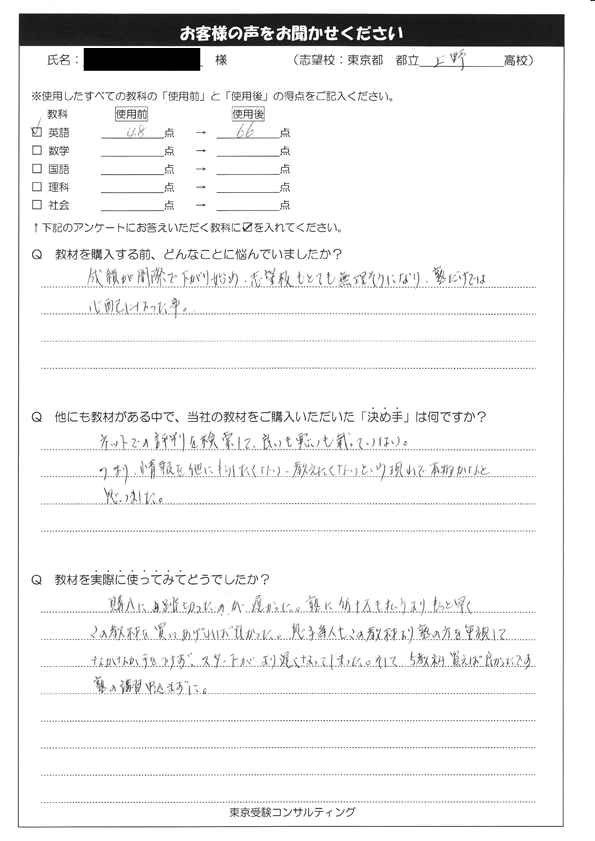 お客様の声をお聞かせください
氏名： 様 （志望校：東京都 都立 上野 高校）
※使用したすべての教科の「使用前」と「使用後」の得点をご記入ください。
教科 使用前 使用後
☑ 英語 48 点 → 66 点
□ 数学 点 → 点
□ 国語 点 → 点
□ 理科 点 → 点
□ 社会 点 → 点
↑下記のアンケートにお答えいただく教科に☑を入れてください。
Q 教材を購入する前、どんなことに悩んでいましたか？
成績が間際で下がり始め、志望校もとても無理そうになり、塾だけでは
心配になった事。
Q 他にも教材がある中で、当社の教材をご購入いただいた「決め手」は何ですか？
ネットでの評判を検索して、良いも悪いも載っていない。
つまり、情報を他に出したくない、教えたくないという現れで本物かなと
思いました。
Q 教材を実際に使ってみてどうでしたか？
購入に踏切ったのが遅かった。塾に何十万も払うよりもっと早く
この教材を買ってあげれば良かった。息子本人もこの教材より塾の方を重視して
なかなか手をつけず、スタートがより遅くなってしまった。そして、5教科買えば良かったです
塾の講習申込まずに。
東京受験コンサルティング